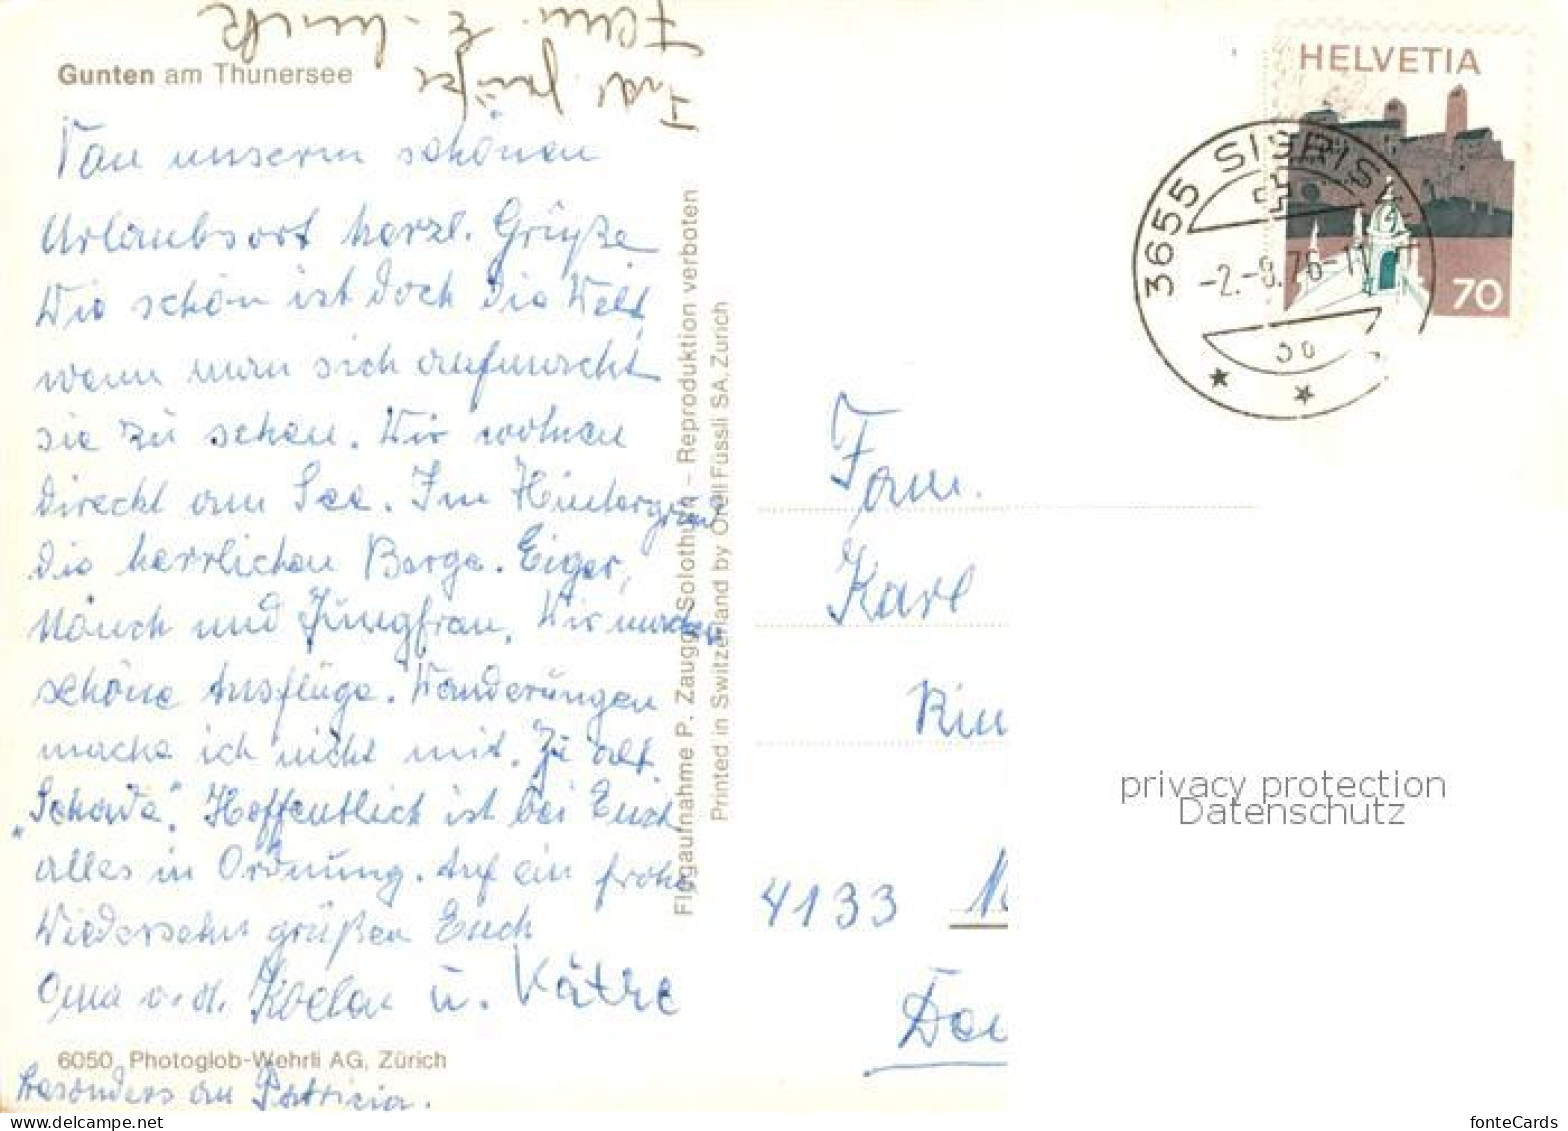 Gunten am Thunersee
Von unserm schönen
Urlaubsort herzl. Grüße
Wie schön ist doch die Welt,
wenn man sich aufmacht
sie zu sehen. Wir wohnen
direckt am See. Im Hintergrund
die herrlichen Berge. Eiger,
Mönch und Jungfrau. Wir machen
schöne Ausflüge. Wanderungen
mache ich nicht mit. Zu alt.
„Schade". Hoffentlich ist bei Euch
alles in Ordnung. Auf ein frohes
Wiedersehn grüßen Euch
Oma v. d. u. Käthe
6050 Photoglob-Wehrli AG, Zürich
besonders an Patricia.
Flugaufnahme P. Zaugg, Solothurn – Reproduktion verboten
Printed in Switzerland by Orell Füssli SA, Zürich
HELVETIA
70
3655 SIGRISW
-2.-9.76-11
Fam.
Karl
4133
privacy protection
Datenschutz
fonteCards
www.delcampe.net